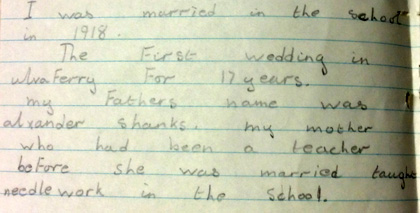 I was married in the school
in 1918.
The First wedding in
ulvaFerry For 17 years.
my Fathers name was
alxander shanks. my mother
who had been a teacher
before she was married taught
needlework in the School.